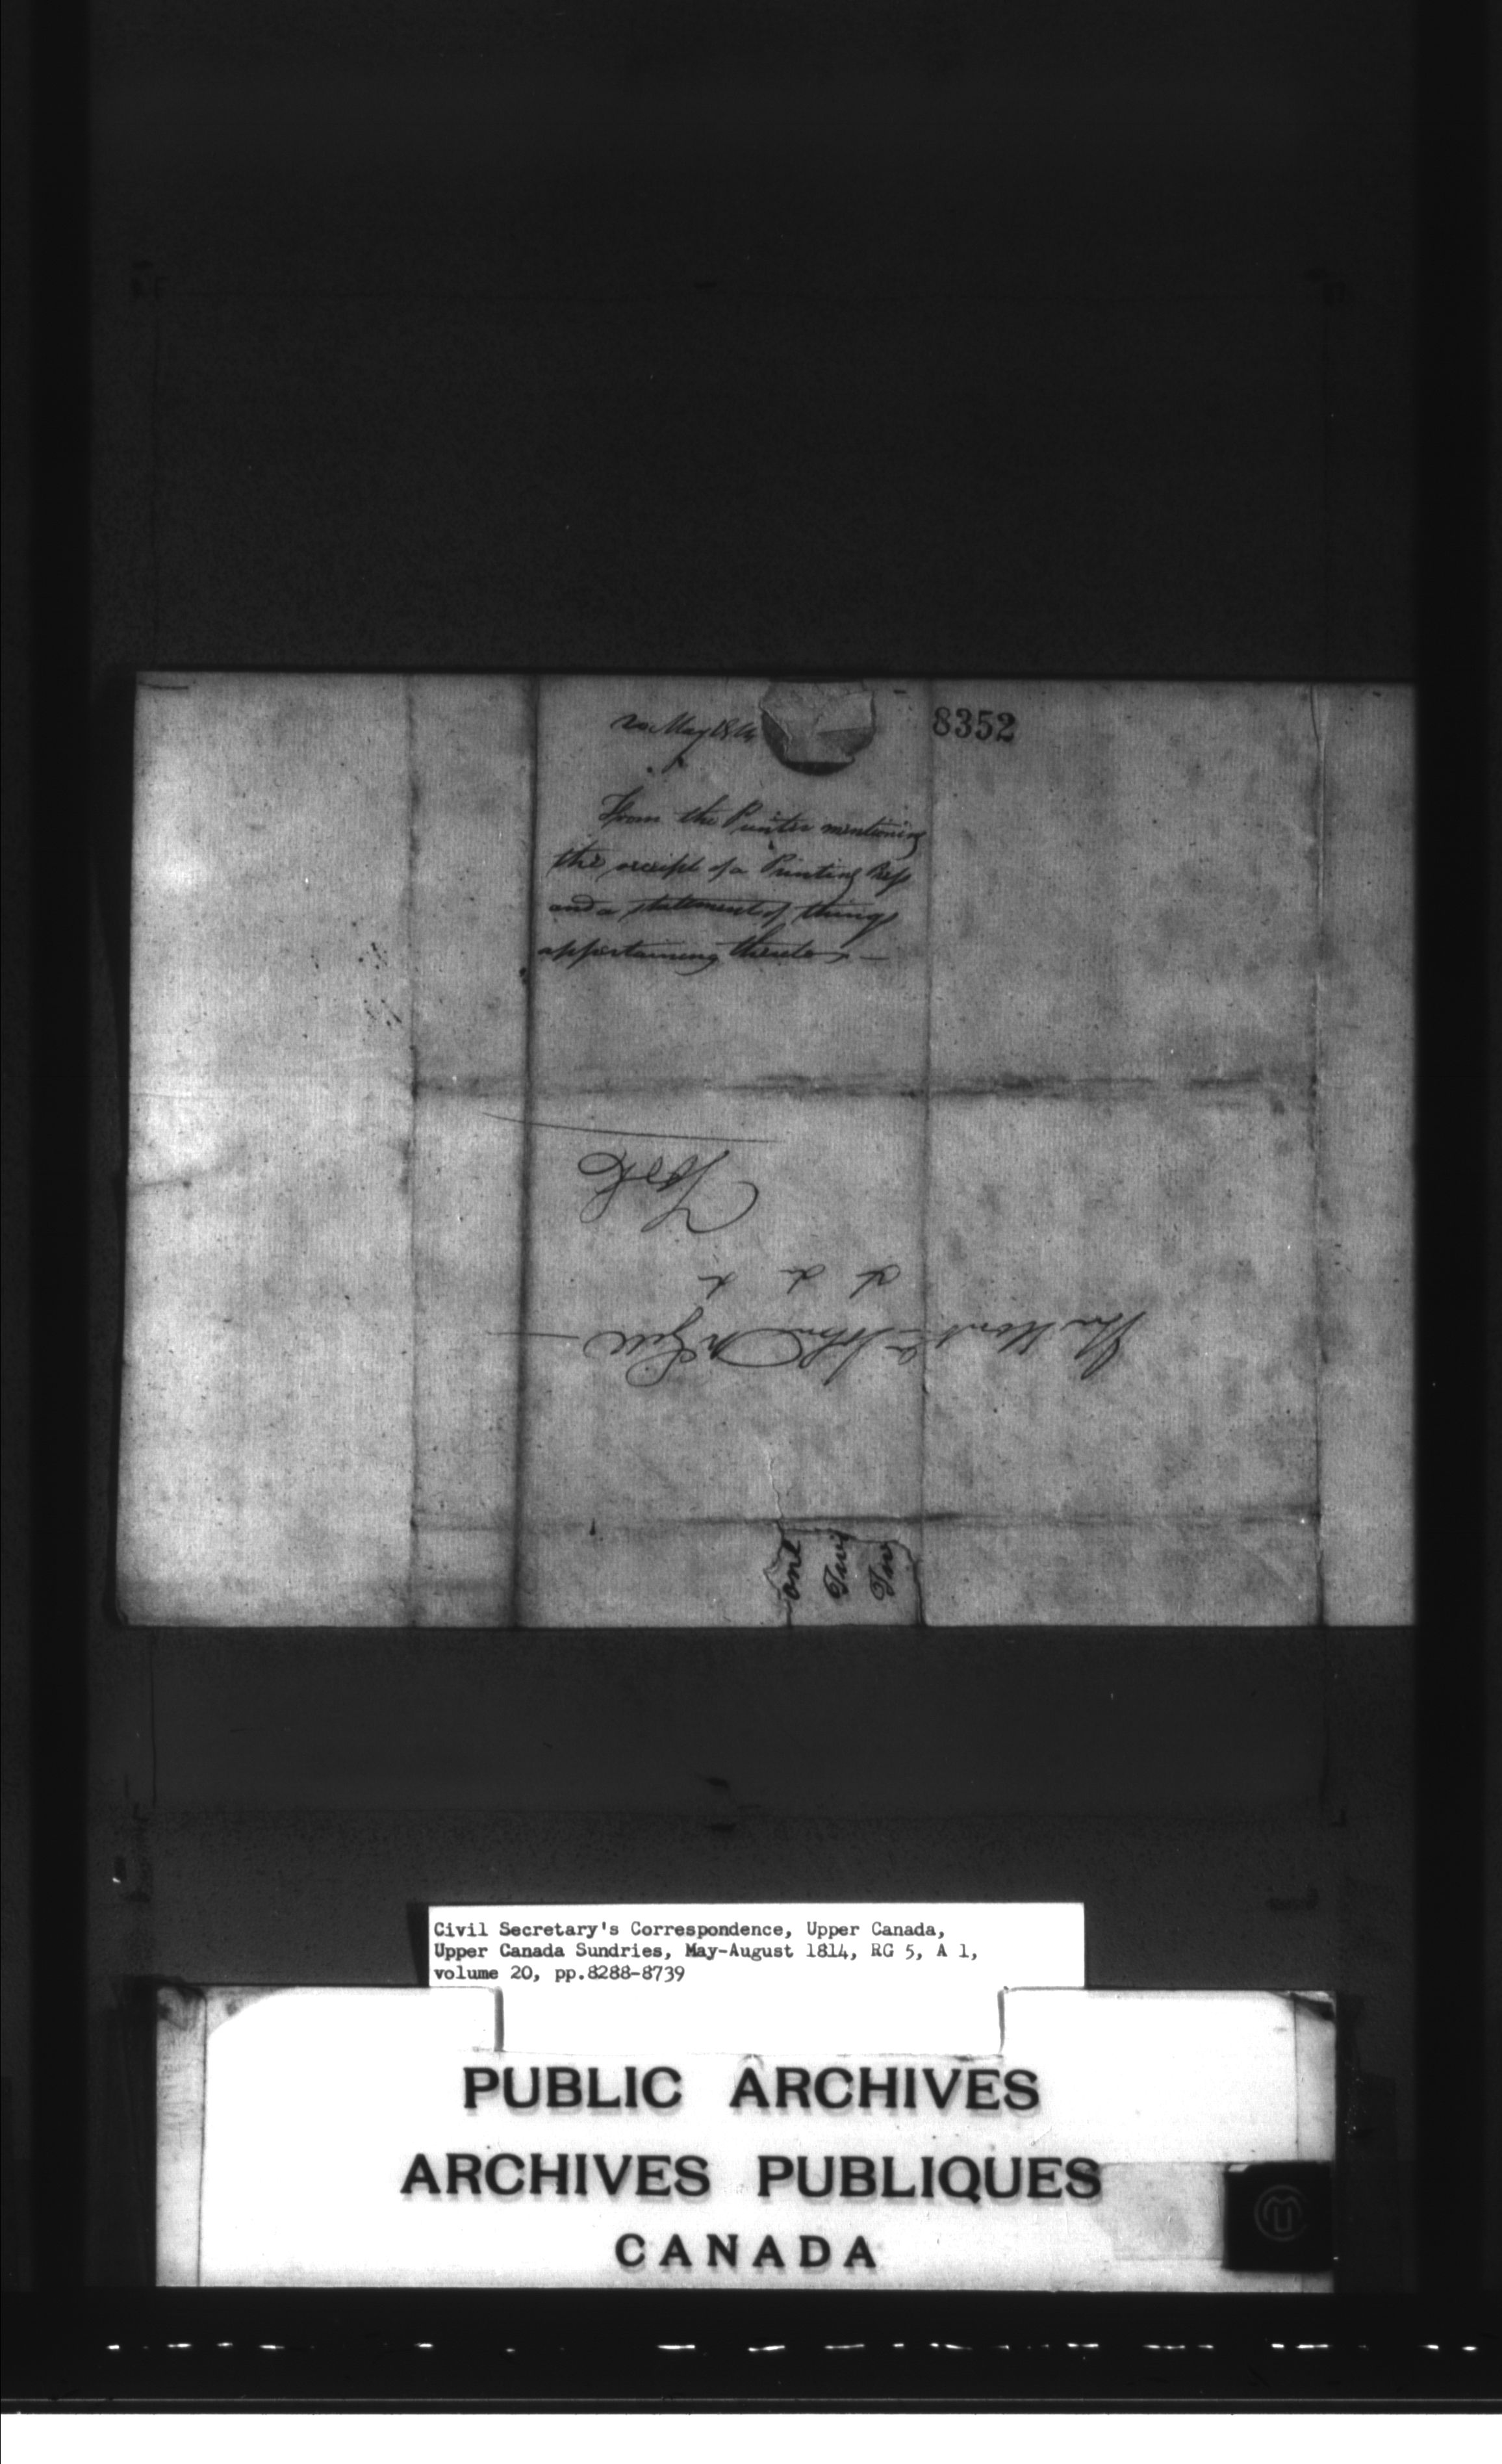 20 May 1814
8352
From the Printer mentioning
the receipt of a Printing Press
and a statement of things
appertaining thereto —
York
&c &c &c
The Honble John McGill
one
Two
Two
Civil Secretary's Correspondence, Upper Canada,
Upper Canada Sundries, May-August 1814, RG 5, A 1,
volume 20, pp.8288-8739
PUBLIC ARCHIVES
ARCHIVES PUBLIQUES
CANADA